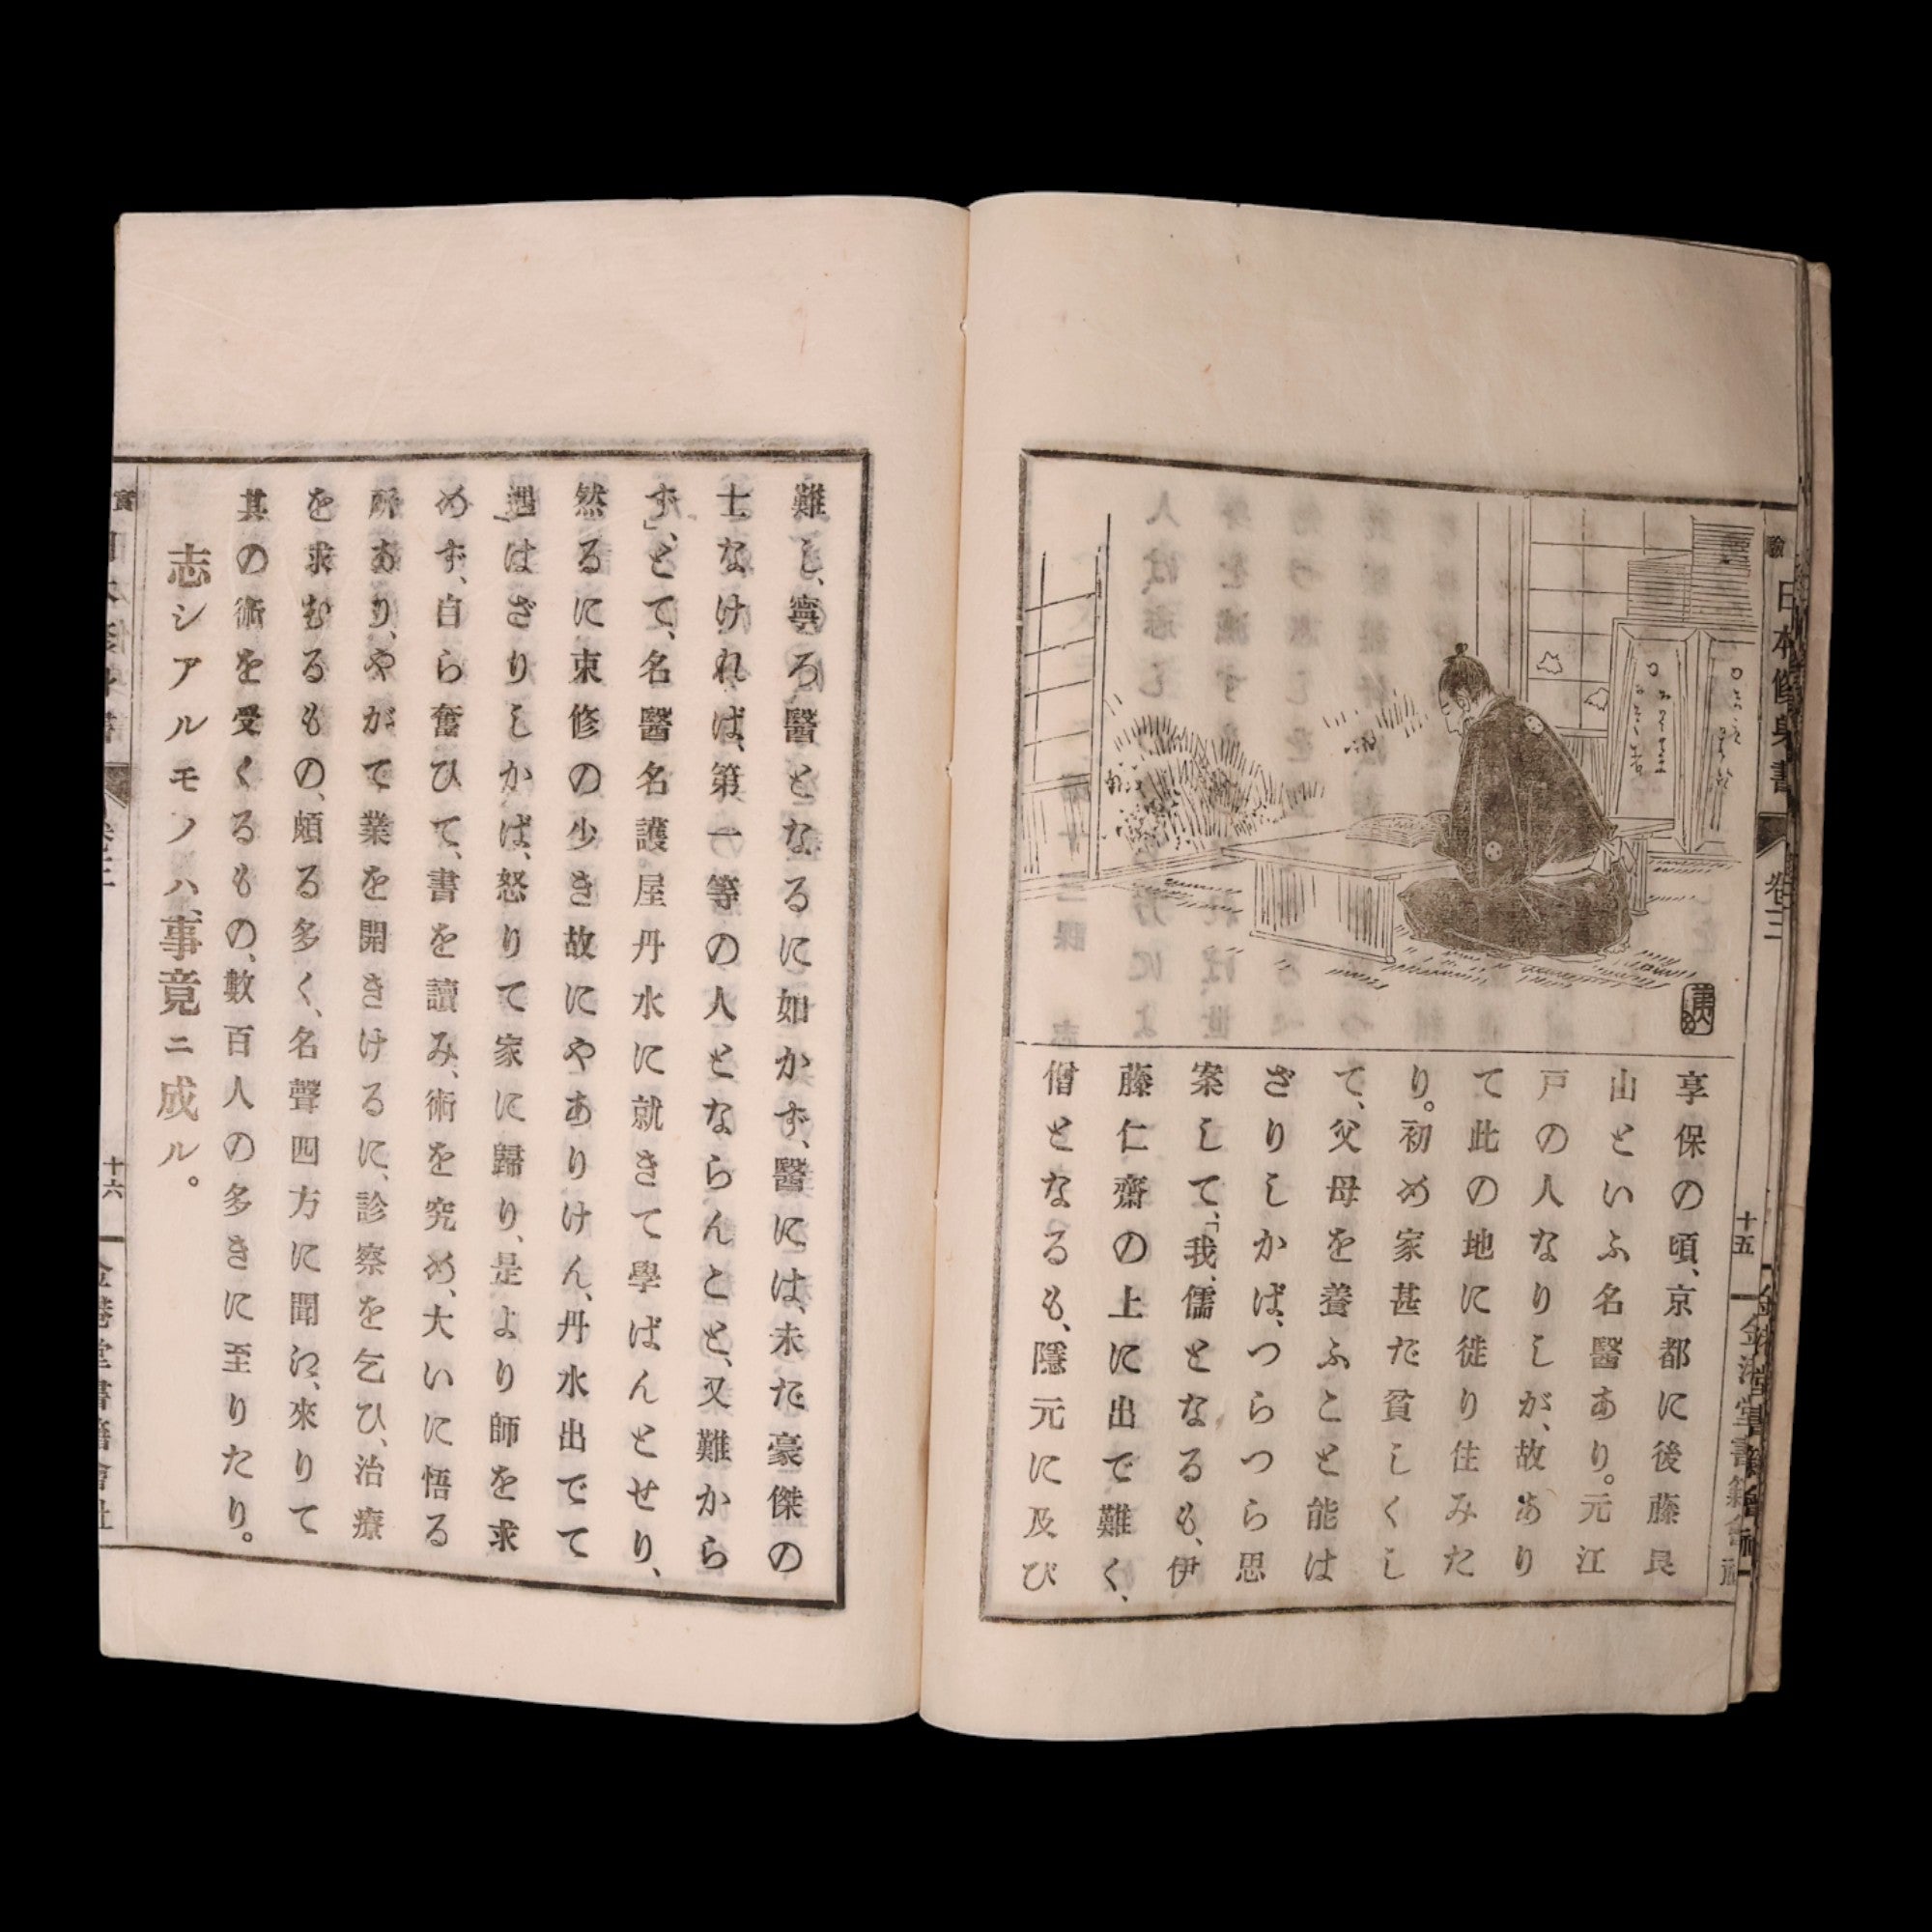 享保の頃、京都に後藤艮
山といふ名醫あり。元江
戸の人なりしが、故あり
て此の地に徙り住みた
り。初め家甚だ貧しくし
て、父母を養ふこと能は
ざりしかば、つらつら思
案して、「我、儒となるも、伊
藤仁齋の上に出で難く、
僧となるも、隱元に及び
日本修身書
卷三
十五
金港堂書籍會社
難し、寧ろ醫となるに如かず、醫には、未だ豪傑の
士なければ、第一等の人とならんこと、又難から
ず」、とて、名醫名護屋丹水に就きて學ばんとせり、
然るに束修の少き故にやありけん、丹水出でて
遇はざりしかば、怒りて家に歸り、是より師を求
めず、自ら奮ひて、書を讀み、術を究め、大いに悟る
所あり、やがて業を開きけるに、診察を乞ひ、治療
を求むるもの、頗る多く、名聲四方に聞え、來りて
其の術を受くるもの、數百人の多きに至りたり。
志シアルモノハ、事竟ニ成ル。
十六